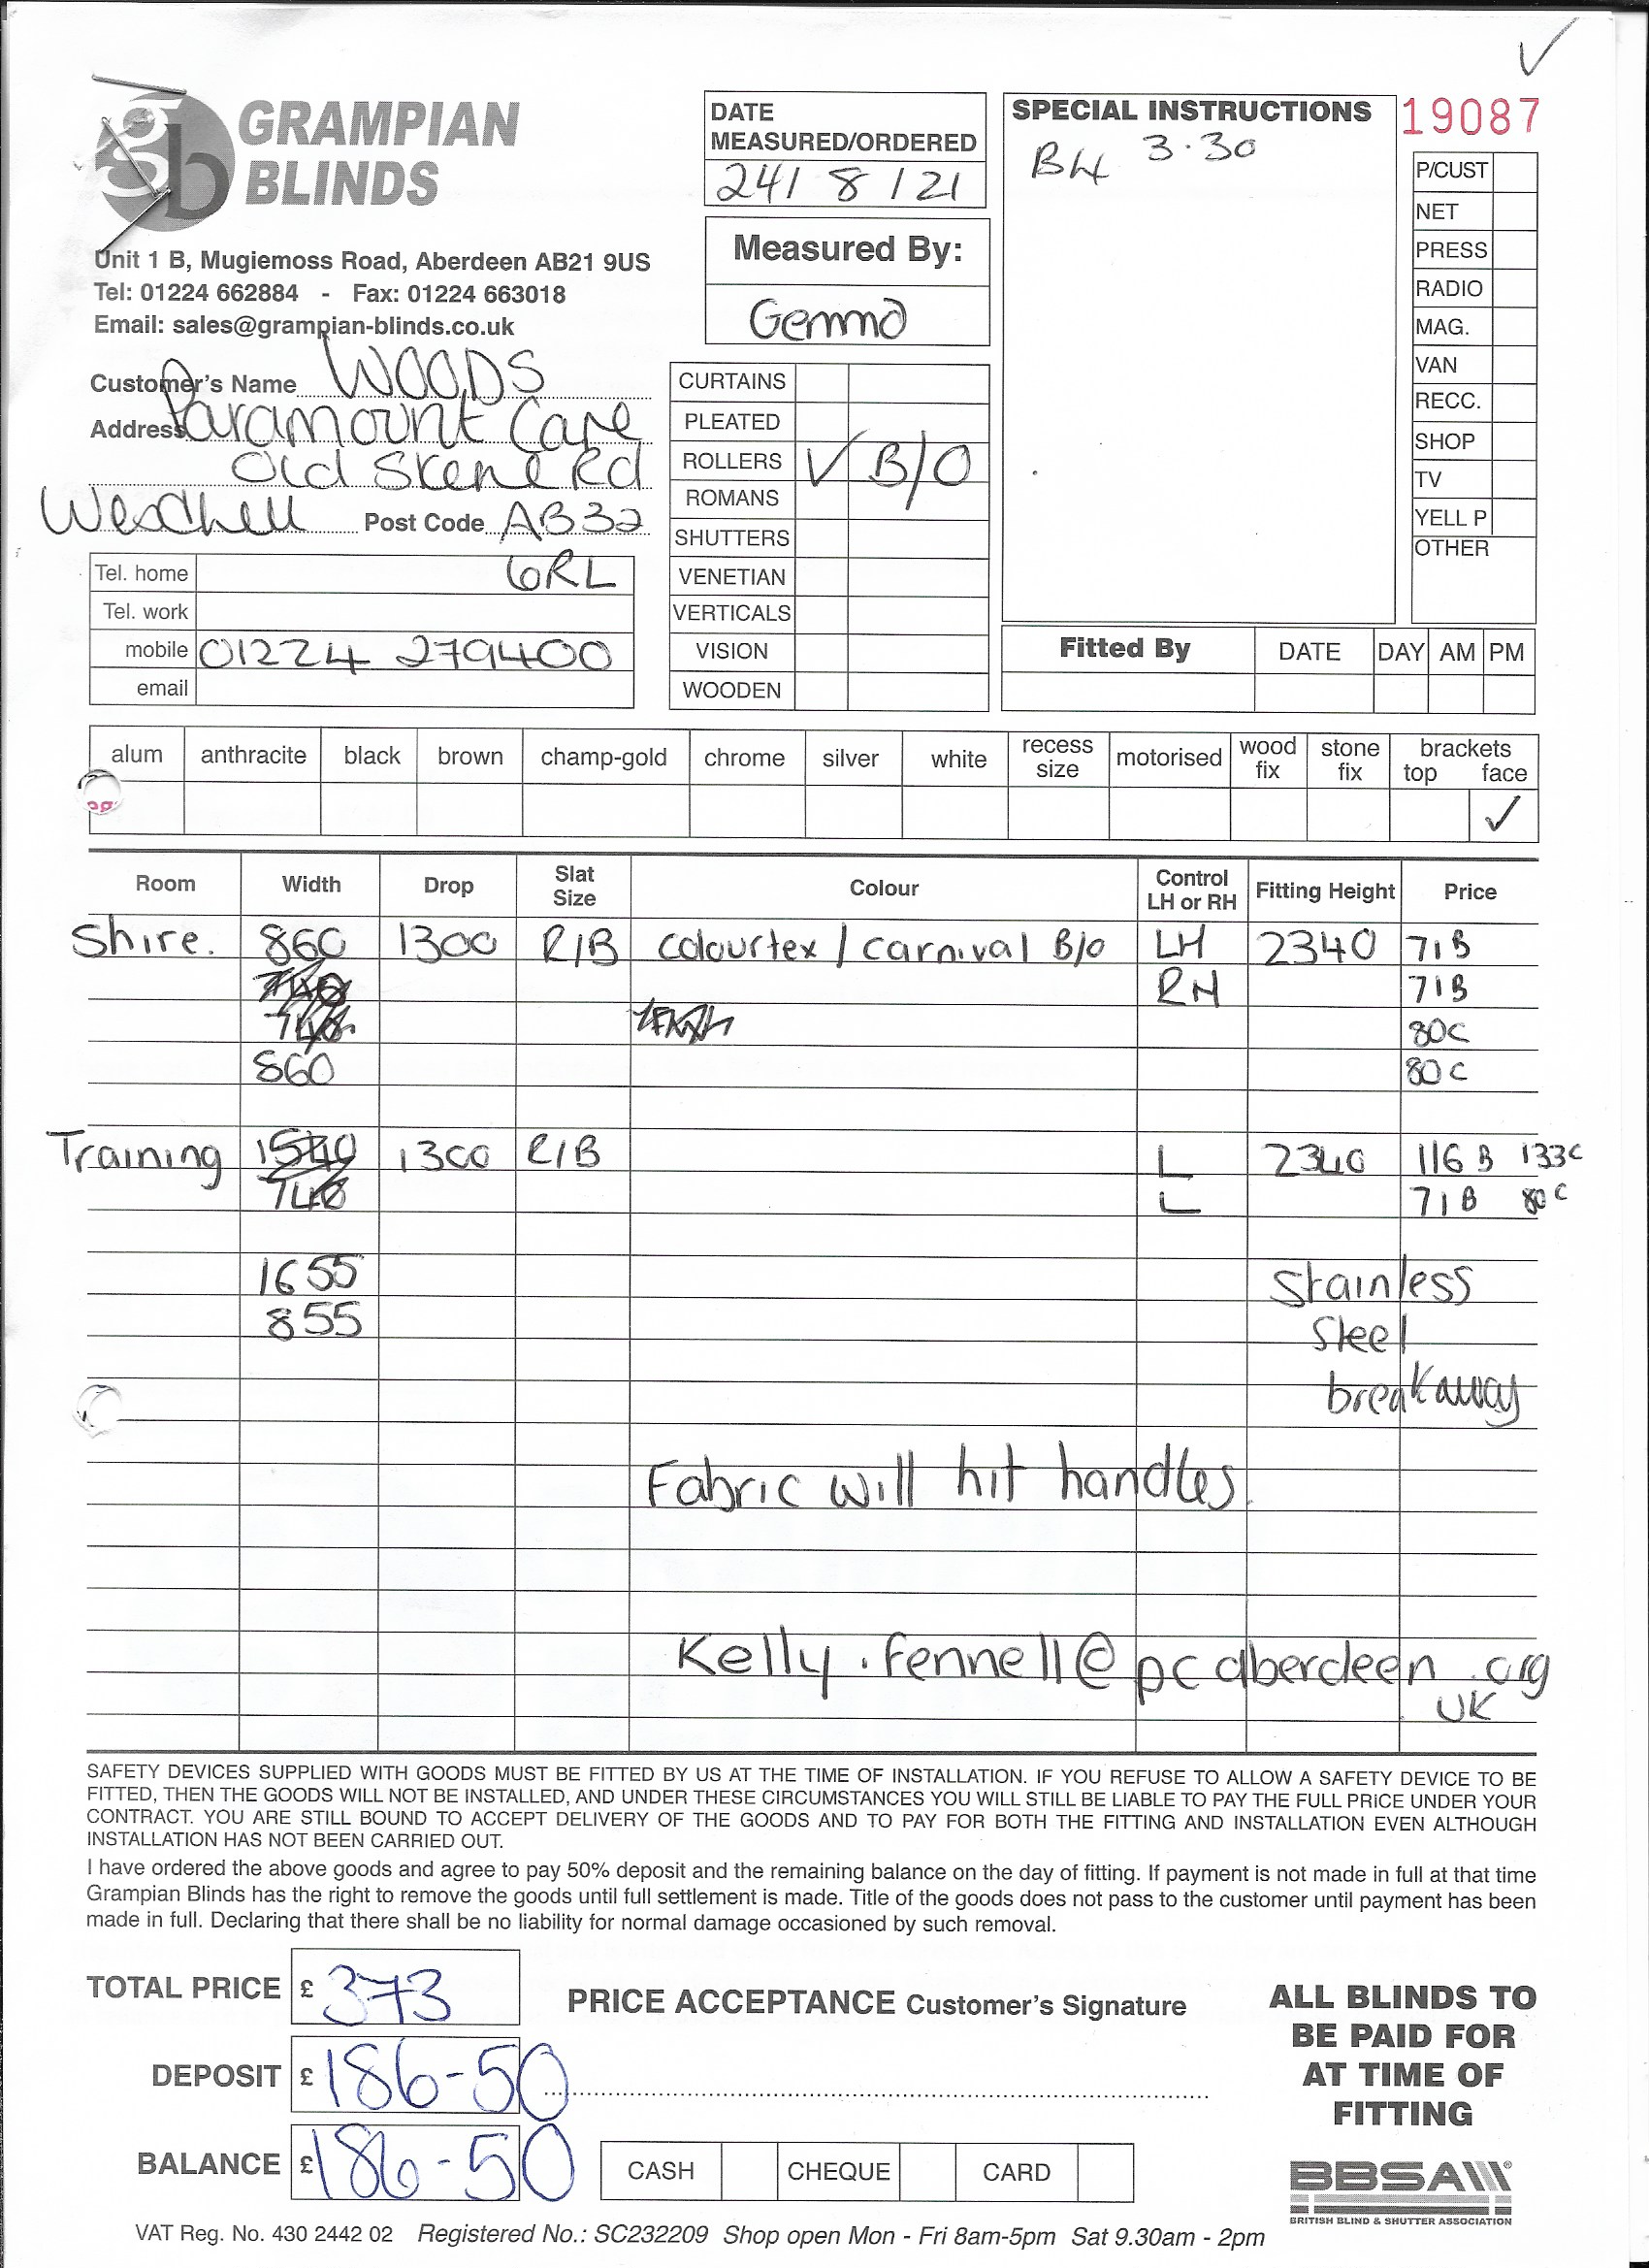 GRAMPIAN
BLINDS
Unit 1 B, Mugiemoss Road, Aberdeen AB21 9US
Tel: 01224 662884 - Fax: 01224 663018
Email: sales@grampian-blinds.co.uk
Customer's Name WOODS
Address Paramount Care
Old Skene Rd
Westhill Post Code AB32
6RL
Tel. home
Tel. work
mobile 01224 279400
email
DATE
MEASURED/ORDERED
24/ 8 / 21
Measured By:
Gemma
CURTAINS
PLEATED
ROLLERS ✓ B/O
ROMANS
SHUTTERS
VENETIAN
VERTICALS
VISION
WOODEN
SPECIAL INSTRUCTIONS
3.30
19087
P/CUST
NET
PRESS
RADIO
MAG.
VAN
RECC.
SHOP
TV
YELL P
OTHER
Fitted By DATE DAY AM PM
alum anthracite black brown champ-gold chrome silver white recess size motorised wood fix stone fix brackets top face
✓
Room Width Drop Slat Size Colour Control LH or RH Fitting Height Price
Shire. 860 1300 R/B colourtex / carnival B/o LH 2340 71B
740 RH 71B
740 80C
860 80C
Training 1540 1300 R/B L 2340 116 B 133C
740 L 71 B 80C
1655 Stainless
855 Steel
breakaway
Fabric will hit handles
Kelly.fennell@pcaberdeen.org
UK
SAFETY DEVICES SUPPLIED WITH GOODS MUST BE FITTED BY US AT THE TIME OF INSTALLATION. IF YOU REFUSE TO ALLOW A SAFETY DEVICE TO BE
FITTED, THEN THE GOODS WILL NOT BE INSTALLED, AND UNDER THESE CIRCUMSTANCES YOU WILL STILL BE LIABLE TO PAY THE FULL PRICE UNDER YOUR
CONTRACT. YOU ARE STILL BOUND TO ACCEPT DELIVERY OF THE GOODS AND TO PAY FOR BOTH THE FITTING AND INSTALLATION EVEN ALTHOUGH
INSTALLATION HAS NOT BEEN CARRIED OUT.
I have ordered the above goods and agree to pay 50% deposit and the remaining balance on the day of fitting. If payment is not made in full at that time
Grampian Blinds has the right to remove the goods until full settlement is made. Title of the goods does not pass to the customer until payment has been
made in full. Declaring that there shall be no liability for normal damage occasioned by such removal.
TOTAL PRICE £ 373
DEPOSIT £ 186-50
BALANCE £ 186-50
PRICE ACCEPTANCE Customer's Signature
CASH CHEQUE CARD
ALL BLINDS TO
BE PAID FOR
AT TIME OF
FITTING
BBSA
BRITISH BLIND & SHUTTER ASSOCIATION
VAT Reg. No. 430 2442 02 Registered No.: SC232209 Shop open Mon - Fri 8am-5pm Sat 9.30am - 2pm